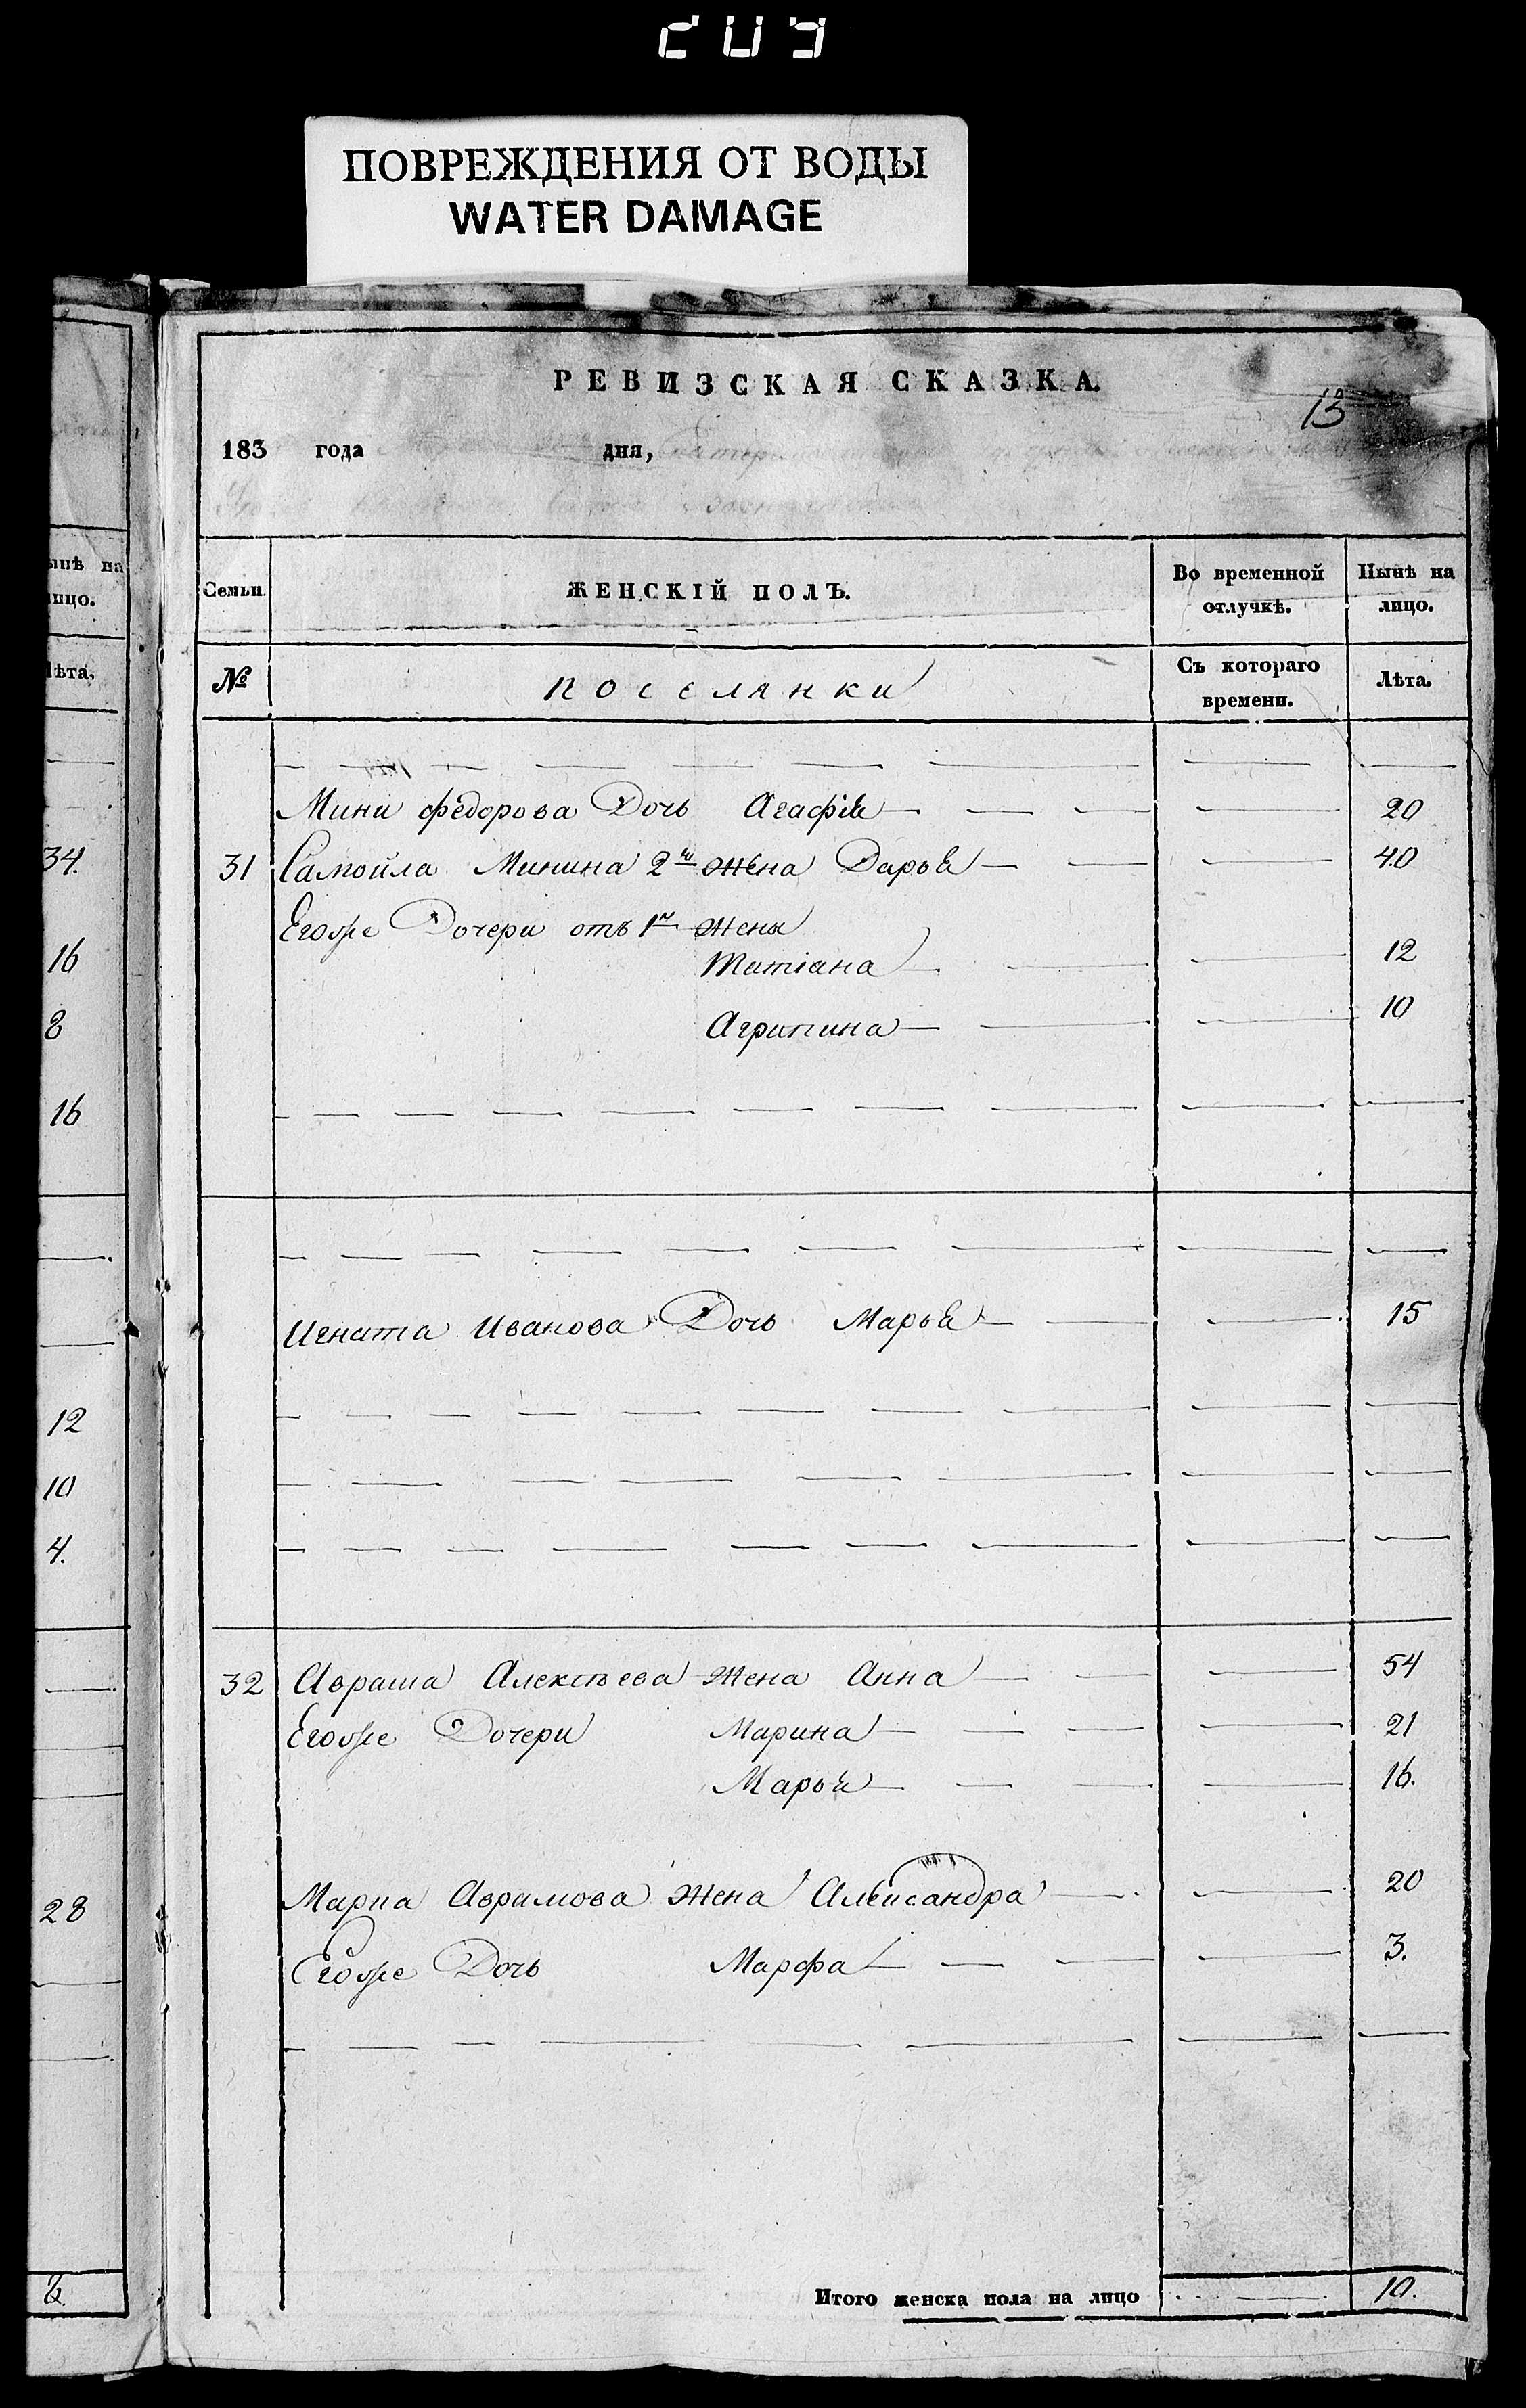 209
ПОВРЕЖДЕНИЯ ОТ ВОДЫ
WATER DAMAGE
РЕВИЗСКАЯ СКАЗКА.
13
183 года дня,
Семьи. ЖЕНСКІЙ ПОЛЪ. Во временной отлучкѣ. Нынѣ на лицо.
№ поселянки Съ котораго времени. Лѣта.
Мини Федорова Дочь Агафія 20
31 Самойла Минина 2я жена Дарья 40
Егоже Дочери отъ 1й жены
Татіана 12
Агрипина 10
Игната Иванова Дочь Марья 15
32 Авраама Алексѣева жена Анна 54
Егоже Дочери Марина 21
Марья 16.
Марка Аврамова жена Александра 20
Егоже Дочь Марфа 3.
Итого женска пола на лицо 10.
ынѣ на
лицо.
Лѣта.
34.
16
8
16
12
10
4.
28